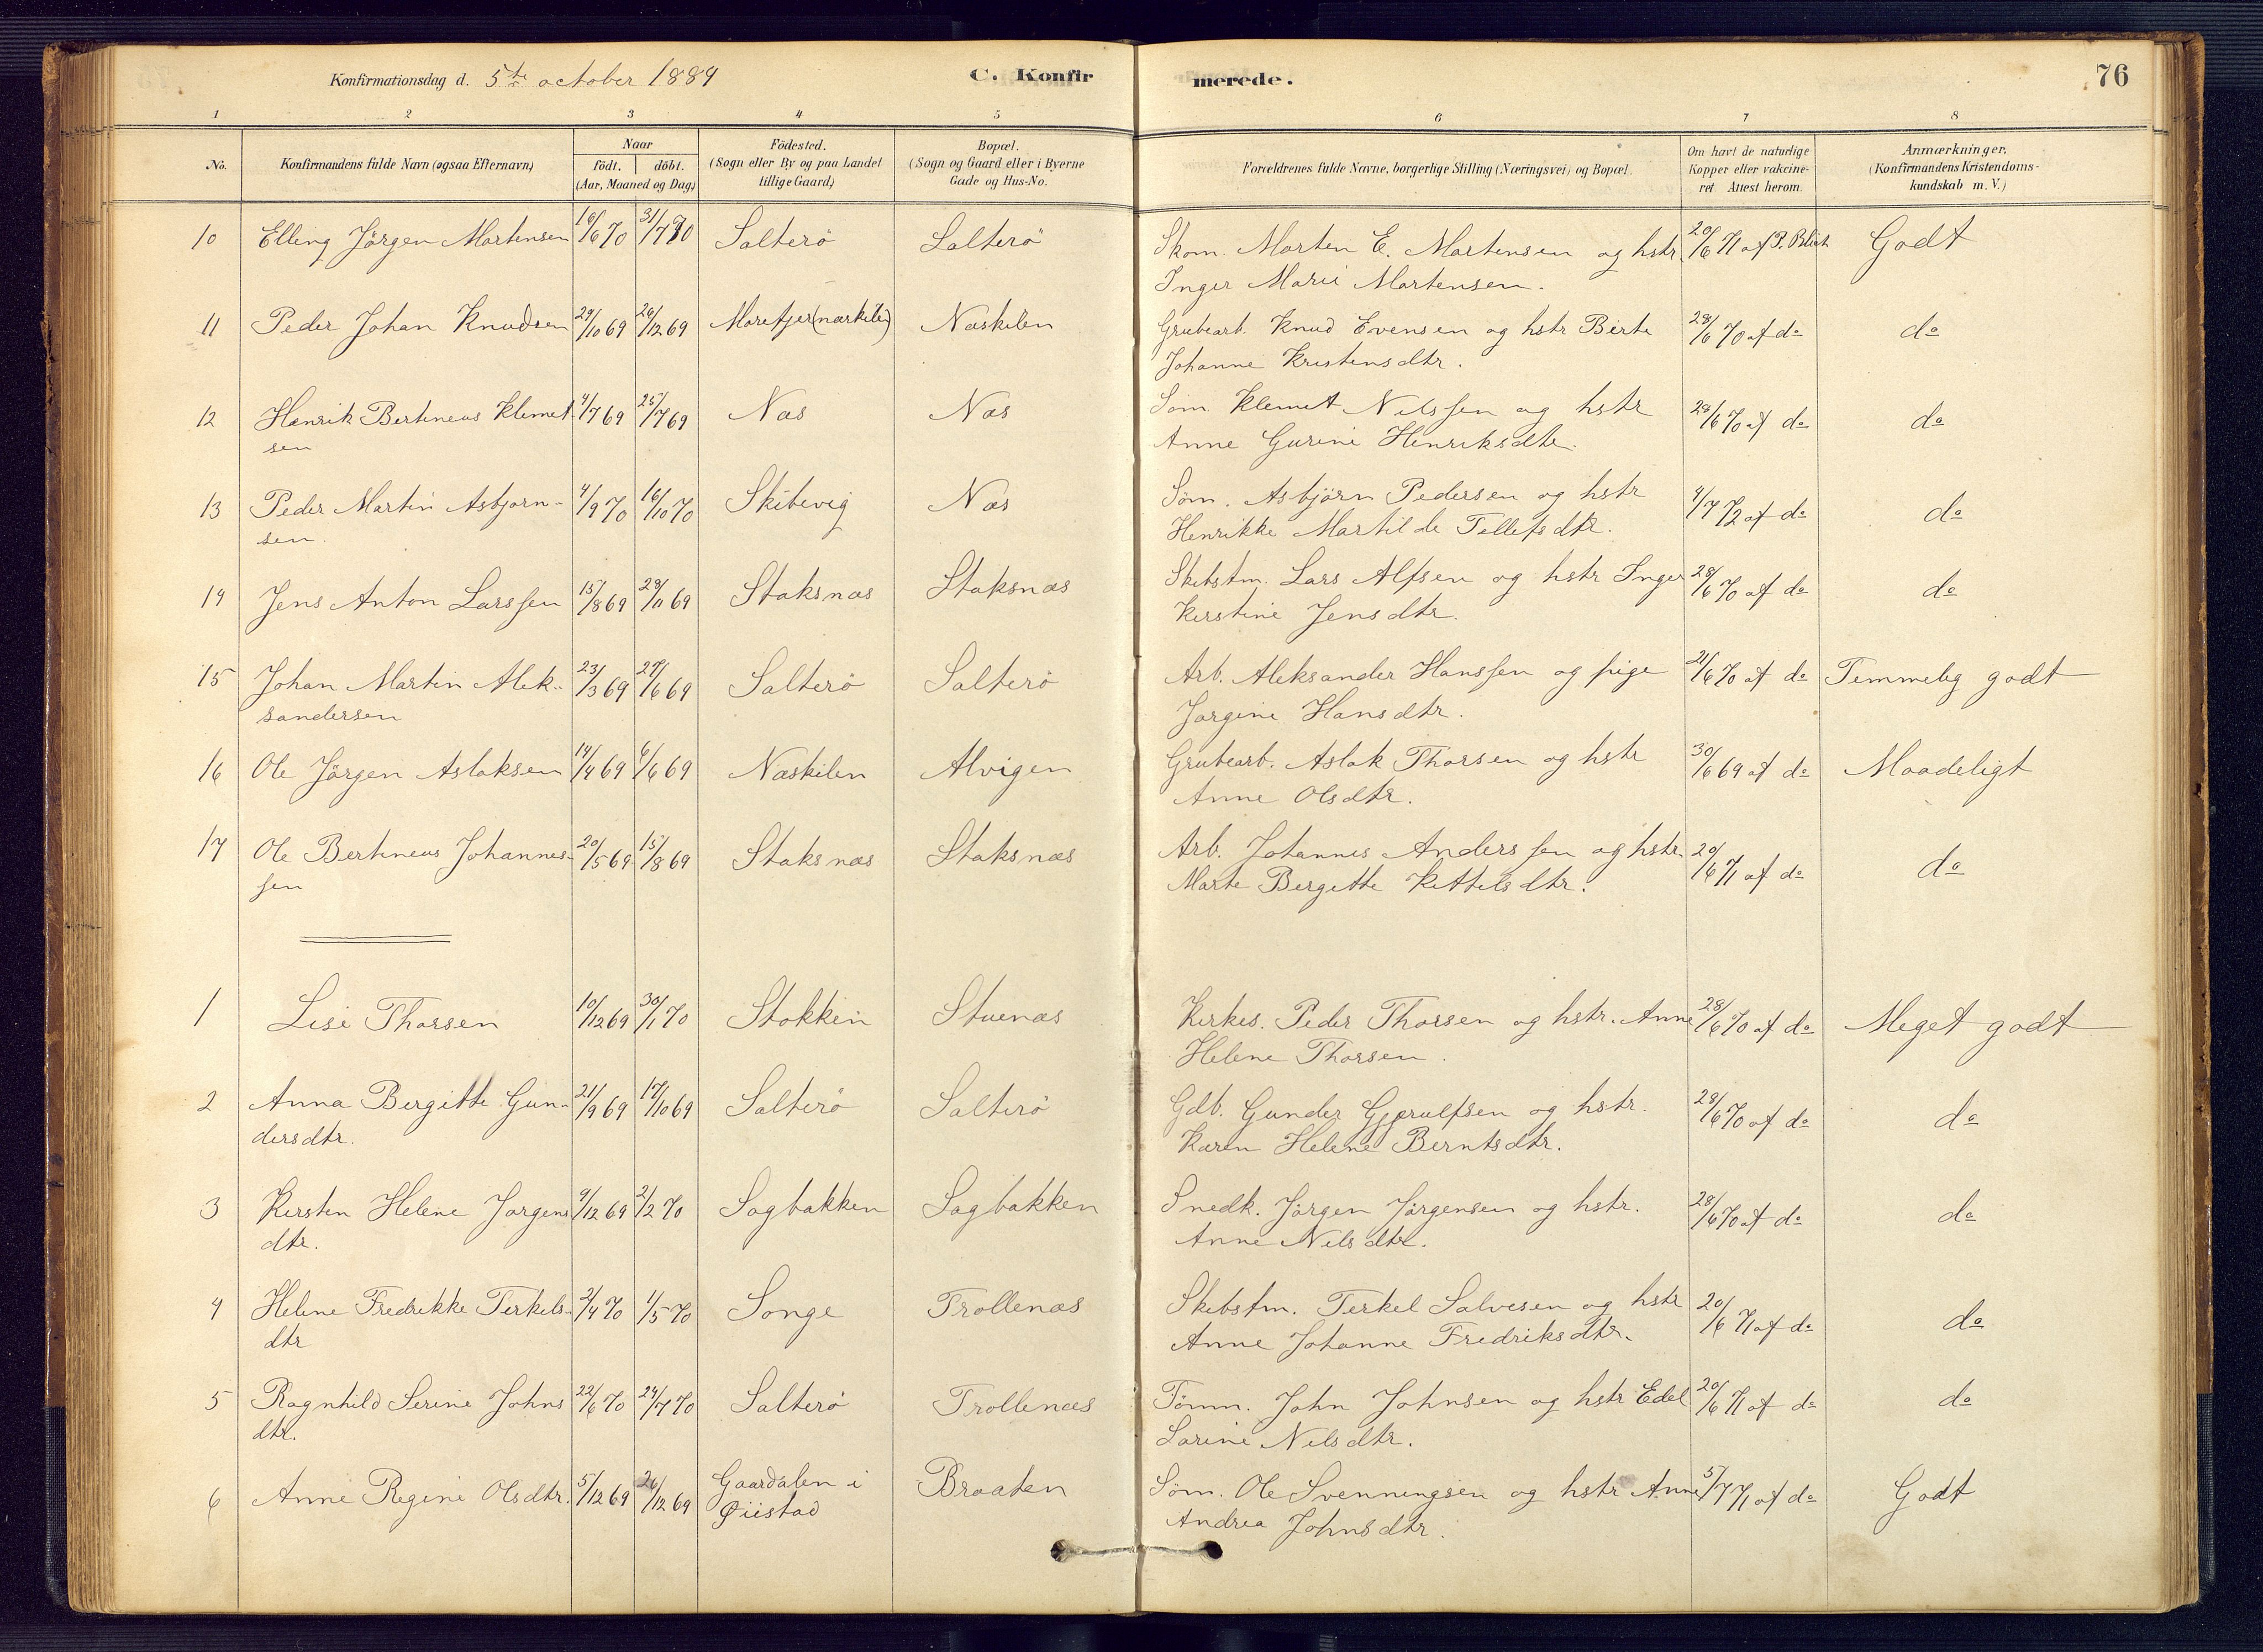 Konfirmationsdag d. 5te october 1884
C. Konfirmerede.
76
1 2 3 4 5 6 7 8
No.
Konfirmandens fulde Navn (ogsaa Efternavn)
Naar
födt. döbt.
(Aar, Maaned og Dag)
Födested.
(Sogn eller By og paa Landet
tillige Gaard)
Bopæl.
(Sogn og Gaard eller i Byerne
Gade og Hus-No.
Forældrenes fulde Navne, borgerlige Stilling (Næringsvei) og Bopæl.
Om havt de naturlige
Kopper eller vakcine-
ret. Attest herom.
Anmærkninger.
(Konfirmandens Kristendoms-
kundskab m. V.)
10 Elling Jörgen Martensen 16/6 70 31/7 70 Salterö Salterö Skom. Marten E. Martensen og hstr. 20/6 71 af P. Godt
Inger Marie Martensen.
11 Peder Johan Knudsen 29/10 69 26/12 69 Morefjer (næskilen) Næskilen Grubearb. Knud Evensen og hstr Birte 28/6 70 af do do
Johanne Kristensdtr.
12 Henrik Bertineus Klemet- 4/7 69 25/7 69 Næs Næs Söm. Klemet Nilssen og hstr 28/6 70 af do do
sen Anne Gurine Henriksdtr.
13 Peder Martin Asbjørn- 4/9 70 16/10 70 Skibevig Næs Söm. Asbjörn Pedersen og hstr 4/7 72 af do do
sen. Henrikke Martilde Tellefsdtr.
14 Jens Anton Larssen 15/8 69 28/11 69 Staksnæs Staksnæs Skibstm. Lars Alfsen og hstr Inger 28/6 70 af do do
Kerstine Jensdtr.
15 Johan Martin Alek- 23/3 69 27/6 69 Salterö Salterö Arb. Aleksander Hanssen og pige 21/6 70 af do Temmelig godt
sandersen Jorgine Hansdtr.
16 Ole Jörgen Aslaksen 14/4 69 6/6 69 Næskilen Alvigen Grubearb. Aslak Thorsen og hstr 30/6 69 af do Maadeligt
Anne Olsdtr.
17 Ole Bertineus Johannes- 20/5 69 15/8 69 Staksnæs Staksnæs Arb. Johannes Anderssen og hstr. 20/6 71 af do do
sen Marte Bergitte Kittilsdtr.
1 Lise Thorsen 10/12 69 30/1 70 Stokken Stuenæs Kirkes. Peder Thorsen og hstr. Anne 28/6 70 af do Meget godt
Helene Thorsen.
2 Anna Bergitte Gun- 21/9 69 17/10 69 Salterö Salterö Gdb. Gunder Gjerulfsen og hstr. 28/6 70 af do do
dersdtr. Karen Helene Berntsdtr.
3 Kirsten Helene Jorgens 9/12 69 2/2 70 Sagbakken Sagbakken Snedk. Jörgen Jörgensen og hstr. 28/6 70 af do do
dtr. Anne Nilsdtr.
4 Helene Fredrikke Terkels- 2/4 70 1/5 70 Songe Trollenæs Skibstm. Terkel Salvesen og hstr 20/6 71 af do do
dtr Anne Johanne Fredriksdtr.
5 Ragnhild Serine Johns 22/6 70 24/7 70 Salterö Trollenæs Tömm. John Johnsen og hstr Edel 20/6 71 af do do
dtr. Sarine Nilsdtr.
6 Anne Regine Olsdtr. 5/12 69 26/12 69 Gaardalen i Braaten Söm. Ole Svenningsen og hstr Anne 5/7 71 af do Godt
Øiestad Andrea Johnsdtr.